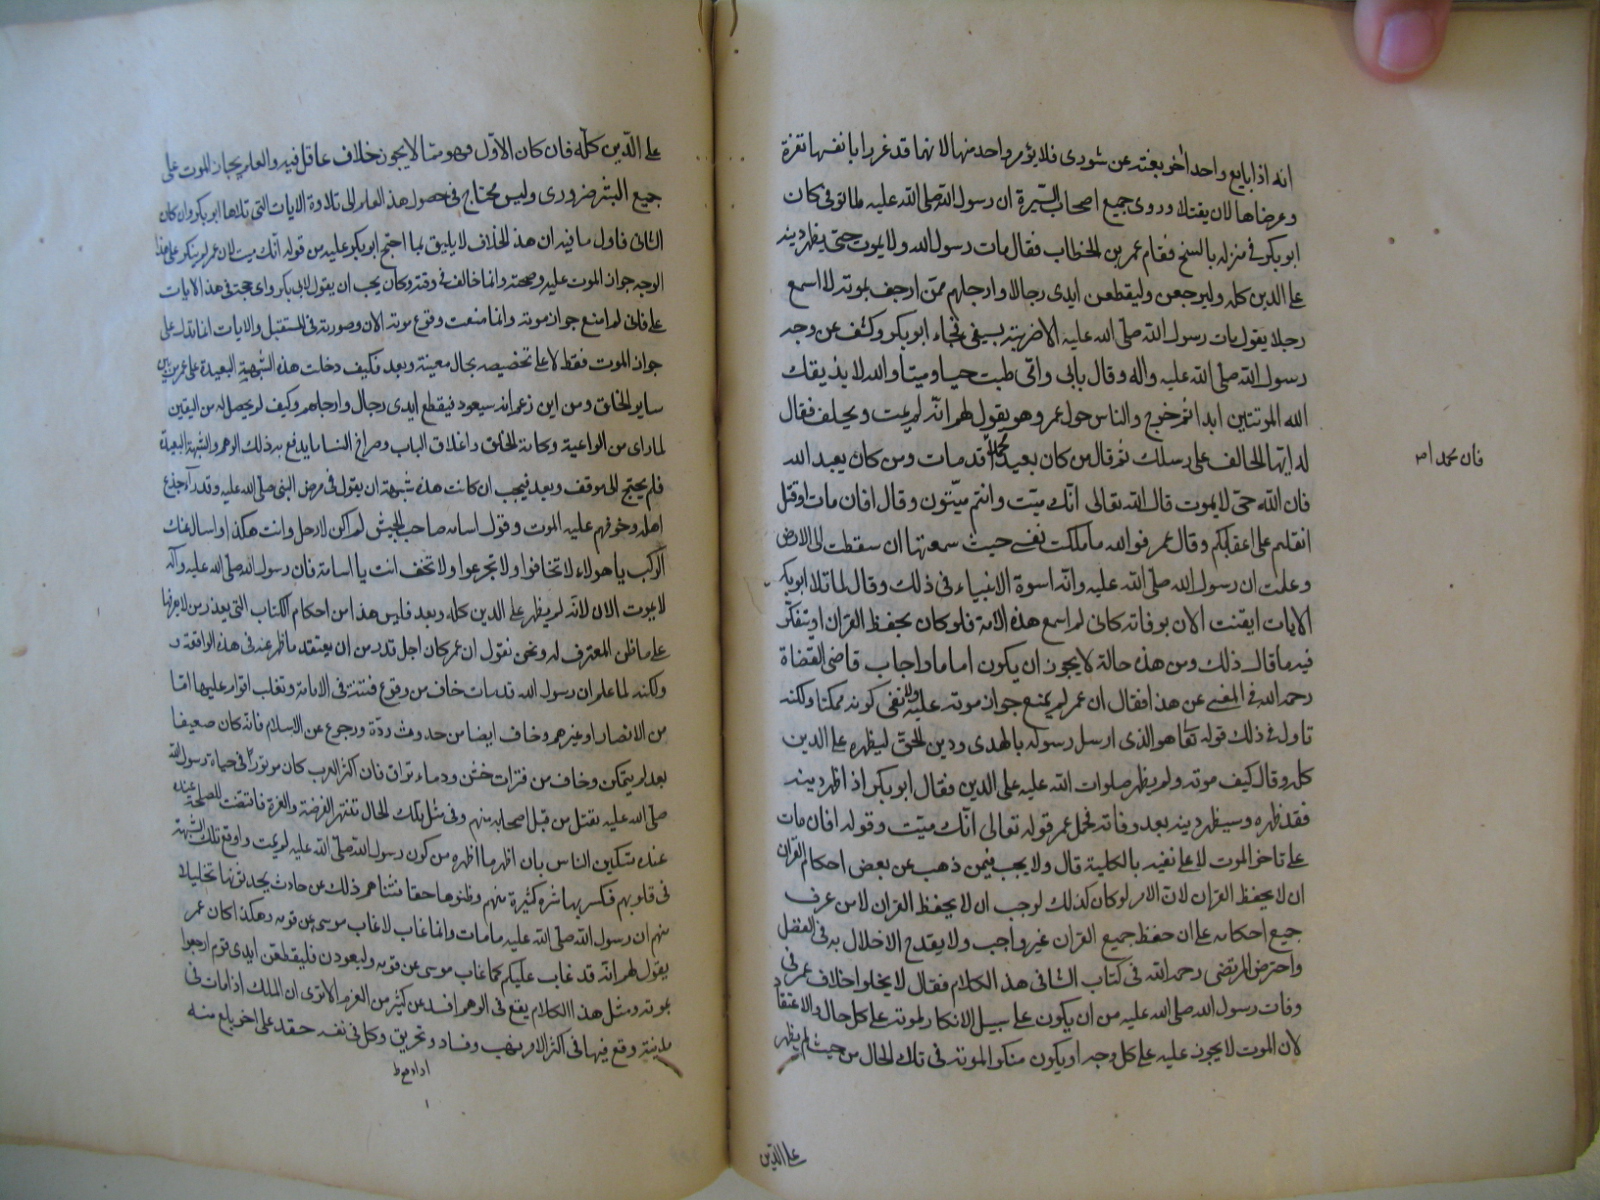 انه اذا بايع واحد آخر بغتة عن شورى فلا يؤمر واحد منهما لانهما قد غررا بانفسهما تغرة
وعرضاها لان يقتلا وروى جميع اصحاب السيرة ان رسول الله صلى الله عليه لما توفى كان
ابو بكر فى منزله بالسنح فقام عمر بن الخطاب فقال مات رسول الله ولا يموت حتى يظهر دينه
على الدين كله وليرجعن وليقطعن ايدى رجال وارجلهم ممن ارجف بموته لا اسمع
رجلا يقول مات رسول الله صلى الله عليه الا ضربته بسيفى فجاء ابو بكر وكشف عن وجه
رسول الله صلى الله عليه واله وقال بابى وامى طبت حيا وميتا والله لا يذيقك
الله الموتتين ابدا ثم خرج والناس حول عمر وهو يقول لهم انه لم يمت ويحلف فقال
له ايها الحالف على رسلك ثم قال من كان يعبد محمدا فان محمدا قد مات ومن كان يعبد الله
فان الله حى لا يموت قال الله تعالى انك ميت وانهم ميتون وقال افان مات او قتل
انقلبتم على اعقابكم وقال عمر فوالله ما ملكت نفسى حيث سمعتها ان سقطت الى الارض
وعلمت ان رسول الله صلى الله عليه وانه اسوة الانبياء فى ذلك وقال لما تلا ابو بكر
الايات ايقنت الان بوفاته كانى لم اسمع هذه الامة فلو كان يحفظ القران او يتفكر
فيه ما قال ذلك ومن هذه حالة لا يجوز ان يكون اماما واجاب قاضى القضاة
رحمه الله فى المغنى عن هذا فقال ان عمر لم يمنع جواز موته عليه ولا نفى كونه ممكنا ولكنه
تاول فى ذلك قوله تعالى هو الذى ارسل رسوله بالهدى ودين الحق ليظهره على الدين
كله وقال كيف موته ولم يظهر صلوات الله عليه على الدين فقال ابو بكر اذا ظهر دينه
فقد ظهره وسيظهر دينه بعد وفاته فحمل عمر قوله تعالى انك ميت وقوله افان مات
على تاخر الموت لا على نفيه بالكلية قال ولا يجب فيمن ذهب عن بعض احكام القران
ان لا يحفظ القران لان الامر لو كان كذلك لوجب ان لا يحفظ القران الا من عرف
جميع احكامه على ان حفظ جميع القران غير واجب ولا يقدح الاخلال به فى الفضل
واعترض المرتضى رحمه الله فى كتاب الشافى هذا الكلام فقال لا يخلو خلاف عمر فى
وفات رسول الله صلى الله عليه من ان يكون على سبيل الانكار لموته على كل حال والاعتقاد
لان الموت لا يجوز عليه على كل وجه او يكون منكرا لموته فى تلك الحال من حيث لم يظهر
على الدين
على الدين كله فان كان الاول فهو مما لا يجوز خلاف عاقل فيه والعلم بجواز الموت على
جميع البشر ضرورى وليس يحتاج فى حصول هذا العلم الى تلاوة الايات التى تلاها ابو بكر وان كان
الثانى فاول ما فيه ان هذا الخلاف لا يليق بما احتج ابو بكر عليه من قوله انك ميت لان عمر لم ينكر على هذا
الوجه جواز الموت عليه وصحته وانما خالف فى وقته وكان يجب ان يقول لابى بكر واى حجة فى هذا الايات
على فانى لم امنع جواز موته وانما منعت وقوع موته الان وجوزته فى المستقبل والايات انما تدل على
جواز الموت فقط لا على تخصيصه بحال معينة وبعد فكيف دخلت هذه الشبهة البعيدة على عمر من بين
ساير الخلق ومن اين زعم انه سيعود فيقطع ايدى رجال وارجلهم وكيف لم يحصل له من اليقين
لما راى من الواعية وكابة الخلق واغلاق الباب وصراخ النسا ما يدفع به ذلك الوهم والشبهة البعيدة
فلم يحتج الى موقف وبعد فيجب ان كانت هذه شبهته ان يقول فى مرض النبى صلى الله عليه وقد راى جزع
اهله وخوفهم عليه الموت وقول اسامه صاحب الجيش لم اكن لارحل وانت هكذا واسال عنك
الركب يا هولاء لا تخافوا ولا تجزعوا ولا تخف انت يا اسامة فان رسول الله صلى الله عليه وآله
لا يموت الان لانه لم يظهر على الدين كله وبعد فليس هذا من احكام الكتاب التى يعذر من لا يعرفها
على ما ظن المعترف له ونحن نقول ان عمر كان اجل قدرا من ان يعتقد ما ظهر عنه فى هذه الواقعة و
ولكنه لما علم ان رسول الله قد مات خاف من وقوع فتنة فى الامامة وتغلب اقوام عليها اما
من الانصار او غيرهم وخاف ايضا من حدوث ردة ورجوع عن الاسلام فانه كان ضعيفا
بعد لم يتمكن وخاف من ترات تشن ودماء تراق فان اكثر العرب كان موتورا فى حياة رسول الله
صلى الله عليه بقتل من قتل اصحابه منهم وفى مثل تلك الحال تنتهز الفرصة والغرة فاقتضت المصلحة عنده
عنده تسكين الناس بان اظهر ما اظهره من كون رسول الله صلى الله عليه لم يمت واوقع تلك الشبهة
فى قلوبهم فكسر بها شره كثيرة منهم وظنوها حقا فثناهم ذلك عن حادث يحدثونها تخيلا
منهم ان رسول الله صلى الله عليه ما مات وانما غاب كما غاب موسى عن قومه وهكذا كان عمر
يقول لهم انه قد غاب عليكم كما غاب موسى عن قومه وليعودن فليقطعن ايدى قوم ارجفوا
بموته ومثل هذا الكلام يقع فى الوهم افسد عن كثير من العزم الا ترى ان الملك اذا مات فى
مدينة وقع فيها فى اكثر الامر نهب وفساد وتحريق وكل فى نفسه حقد على اخر بلغ منه